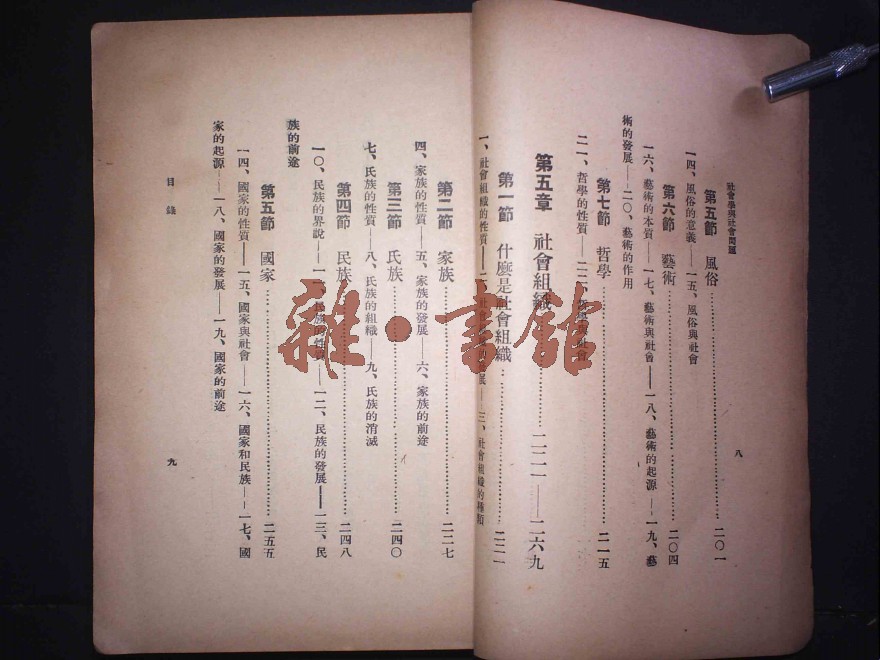 社會學與社會問題
第五節 風俗……二〇一
一四、風俗的意義——一五、風俗與社會
第六節 藝術……二〇四
一六、藝術的本質——一七、藝術與社會——一八、藝術的起源——一九、藝
術的發展——二〇、藝術的作用
第七節 哲學……二一五
二一、哲學的性質——二二、哲學與社會
第五章 社會組織……二二一——二六九
第一節 什麼是社會組織……二二一
一、社會組織的性質——二、社會組織的發展——三、社會組織的種類
八
第二節 家族……二二七
四、家族的性質——五、家族的發展——六、家族的前途
第三節 氏族……二四〇
七、氏族的性質——八、氏族的組織——九、氏族的消滅
第四節 民族……二四八
一〇、民族的界說——一一、民族的性質——一二、民族的發展——一三、民
族的前途
第五節 國家……二五五
一四、國家的性質——一五、國家與社會——一六、國家和民族——一七、國
家的起源——一八、國家的發展——一九、國家的前途
目錄
九
雜·書館